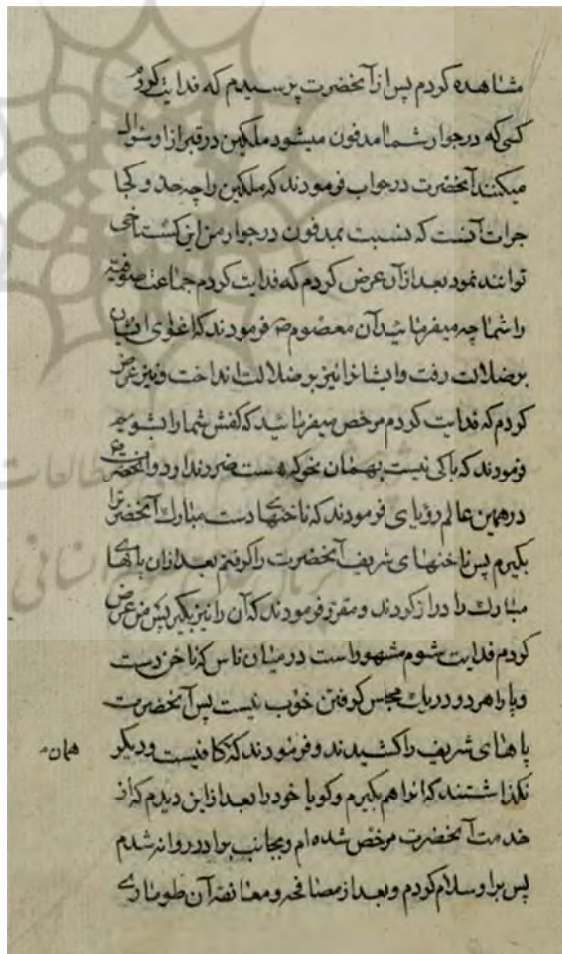 مشاهده کردم پس از آنحضرت پرسیدم که فدایت کردم
کسی که در جوار شما مدفون میشود ملکین در قبر از او سؤال
میکنند آنحضرت در جواب فرمودند که ملکین را چه حد و کجا
جرات آنست که نسبت بمدفون در جوار من این کستاخی
توانند نمود بعد از آن عرض کردم که فدایت کردم جماعت صوفیه
را شما چه میفرمائید آن معصوم فرمودند که اغلوی ایشان
بر ضلالت رفت و ایشانرا نیز بر ضلالت انداخت و نیز عرض
کردم که فدایت کردم مرخص میفرمائید که کفش شما را ببوسم
فرمودند که باکی نیست بهمان نحو که هست ضرر ندارد و آنحضرت
در همین عالم رؤیای فرمودند که ناخنهای دست مبارک آنحضرترا
بکیرم پس ناخنهای شریف آنحضرت را کرفتم بعد از آن پاهای
مبارک را دراز کردند و مقرر فرمودند که آن را نیز بکیر پس من عرض
کردم فدایت شوم مشهور است در میان ناس که ناخن دست
و پا را هر دو در یک مجلس کرفتن خوب نیست پس آنحضرت
پاهای شریف را کشیدند و فرمودند که کافیست و دیکر
همان
نکذاشتند که انرا هم بکیرم و کویا خود را بعد از این دیدم که از
خدمت آنحضرت مرخص شده ام و بجانب برادر روانه شدم
پس بر او سلام کردم و بعد از مصافحه و معانقه آن طوماری